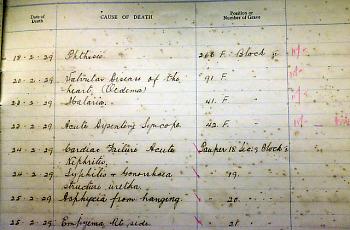 Date of
Death
CAUSE OF DEATH
Position or
Number of Grave
18-2-29 Phthisis 268 F. Block
20-2-29 Valvular Disease of the 91. F.
heart, (Oedema)
Malaria. 41. F.
23-2-29 Acute Dysentery Syncope. 42. F.
24-2-29 Cardiac Failure Acute Pauper 18 Block
Nephritis.
24-2-29 Syphilis + Gonorrhoea 19.
stricture urethra
25-2-29 Asphyxia from hanging. 20.
25-2-29 Empyema Rt side. 21